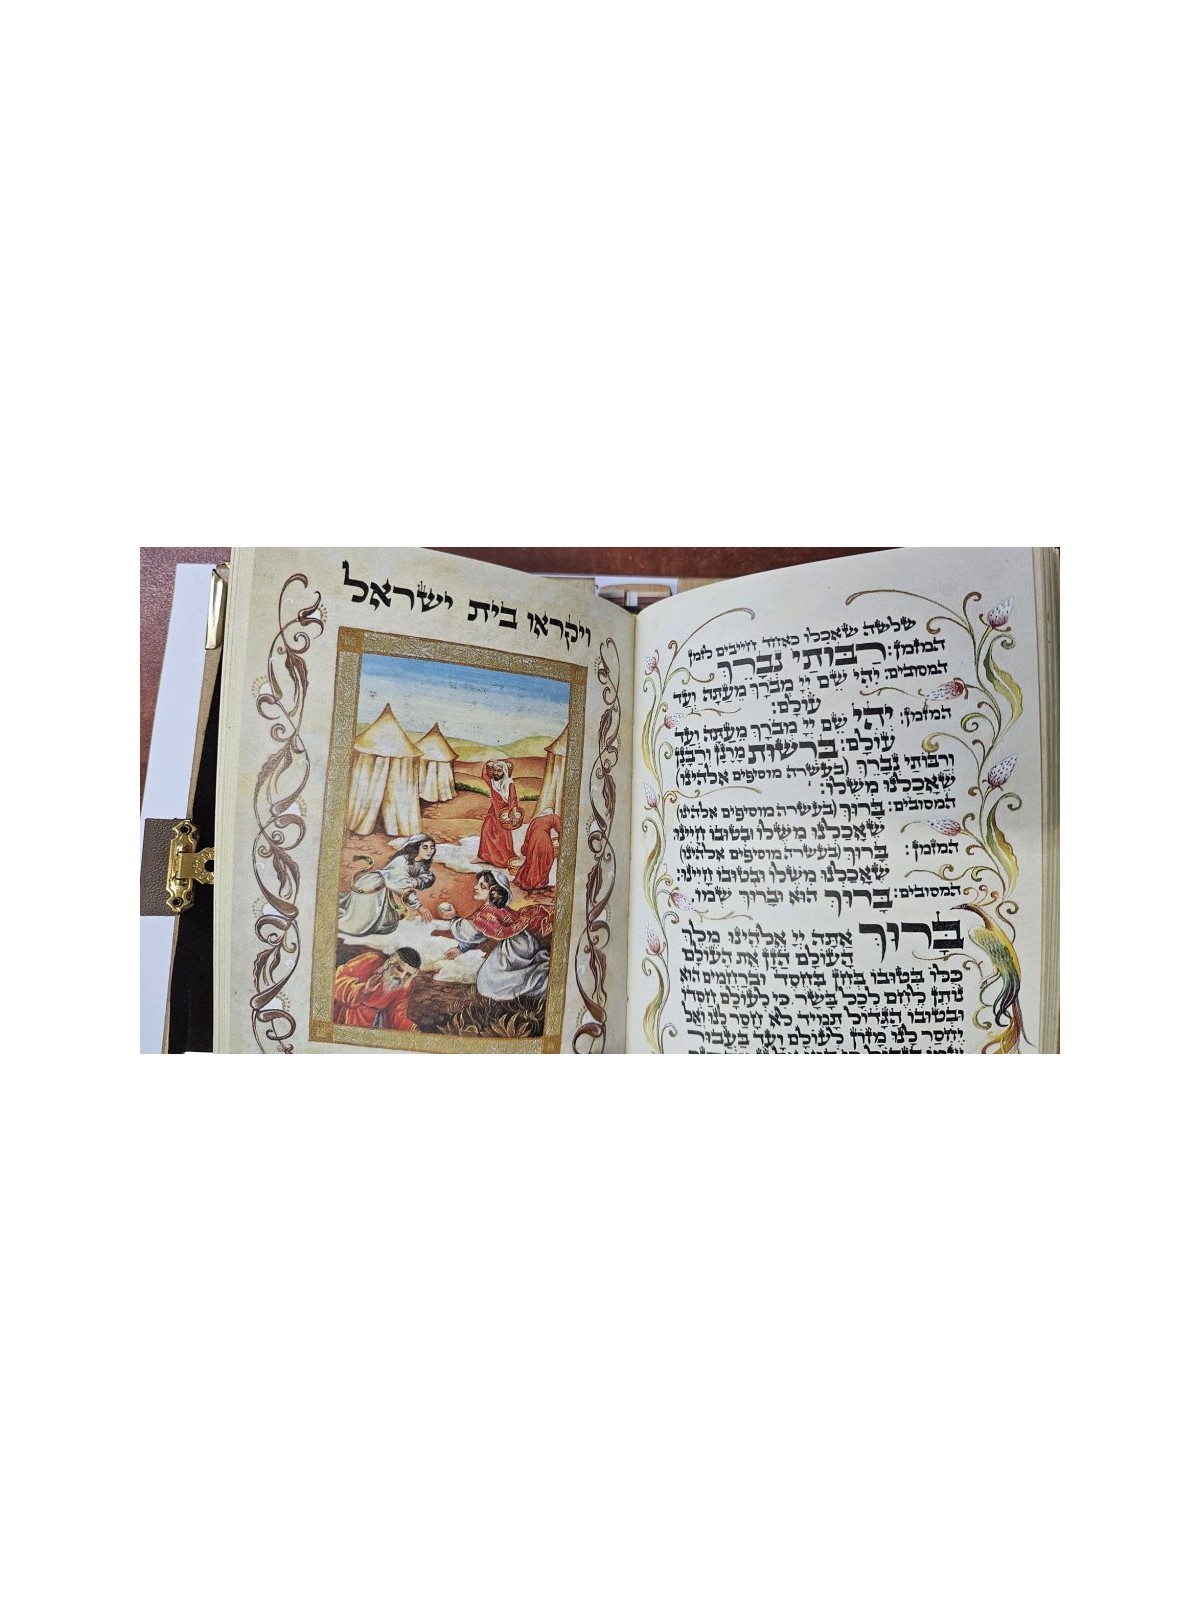 שלשה שאכלו כאחד חייבים לזמן
המזמן: רַבּוֹתַי נְבָרֵךְ
המסובים: יְהִי שֵׁם יְיָ מְבֹרָךְ מֵעַתָּה וְעַד
עוֹלָם:
המזמן: יְהִי שֵׁם יְיָ מְבֹרָךְ מֵעַתָּה וְעַד
עוֹלָם: בִּרְשׁוּת מָרָנָן וְרַבָּנָן
וְרַבּוֹתַי נְבָרֵךְ (בעשרה מוסיפים אלהינו)
שֶׁאָכַלְנוּ מִשֶּׁלּוֹ:
המסובים: בָּרוּךְ (בעשרה מוסיפים אלהינו)
שֶׁאָכַלְנוּ מִשֶּׁלּוֹ וּבְטוּבוֹ חָיִינוּ
המזמן: בָּרוּךְ (בעשרה מוסיפים אלהינו)
שֶׁאָכַלְנוּ מִשֶּׁלּוֹ וּבְטוּבוֹ חָיִינוּ:
המסובים: בָּרוּךְ הוּא וּבָרוּךְ שְׁמוֹ.
בָּרוּךְ אַתָּה יְיָ אֱלֹהֵינוּ מֶלֶךְ
הָעוֹלָם הַזָּן אֶת הָעוֹלָם
כֻּלּוֹ בְּטוּבוֹ בְּחֵן בְּחֶסֶד וּבְרַחֲמִים הוּא
נוֹתֵן לֶחֶם לְכָל בָּשָׂר כִּי לְעוֹלָם חַסְדּוֹ
וּבְטוּבוֹ הַגָּדוֹל תָּמִיד לֹא חָסַר לָנוּ וְאַל
יֶחְסַר לָנוּ מָזוֹן לְעוֹלָם וָעֶד בַּעֲבוּר
ויקראו בית ישראל